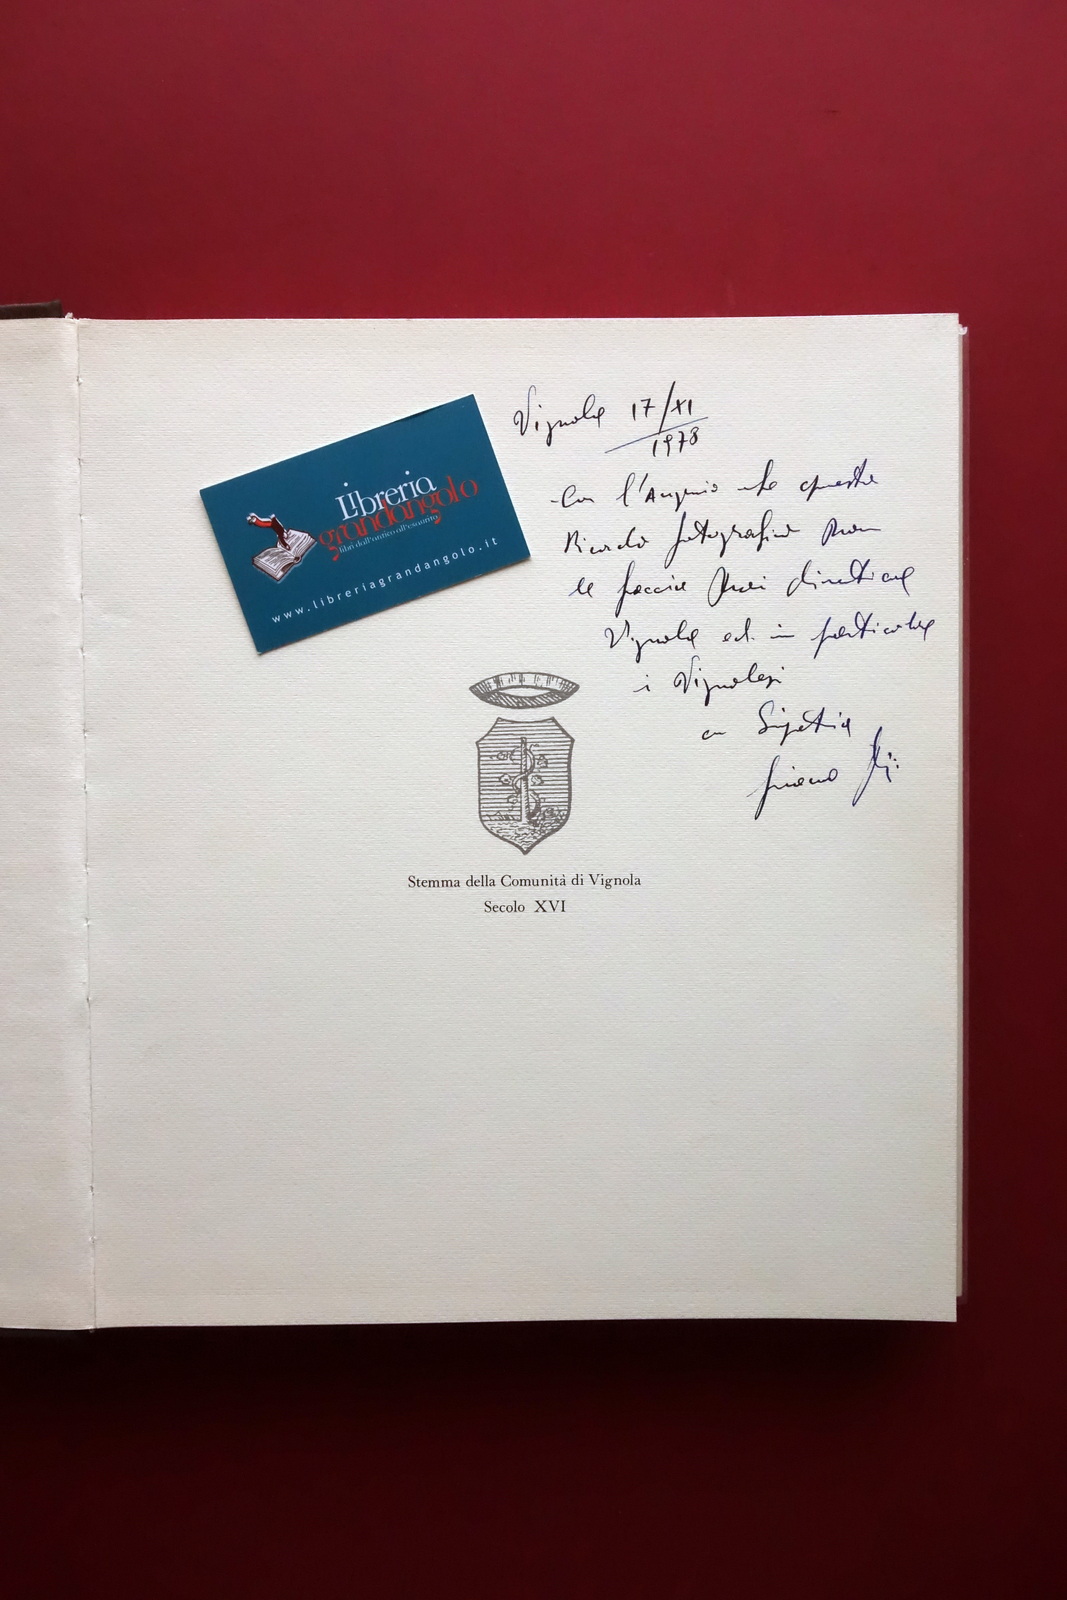 Libreria
grandangolo
libri dall'antico all'esaurito
www.libreriagrandangolo.it
Vignola 17/XI
1978
Con l'Augurio che questo
Ricordo fotografico non
le faccia mai dimenticare
Vignola ed in particolare
i Vignolesi
con Simpatia
Stemma della Comunità di Vignola
Secolo XVI